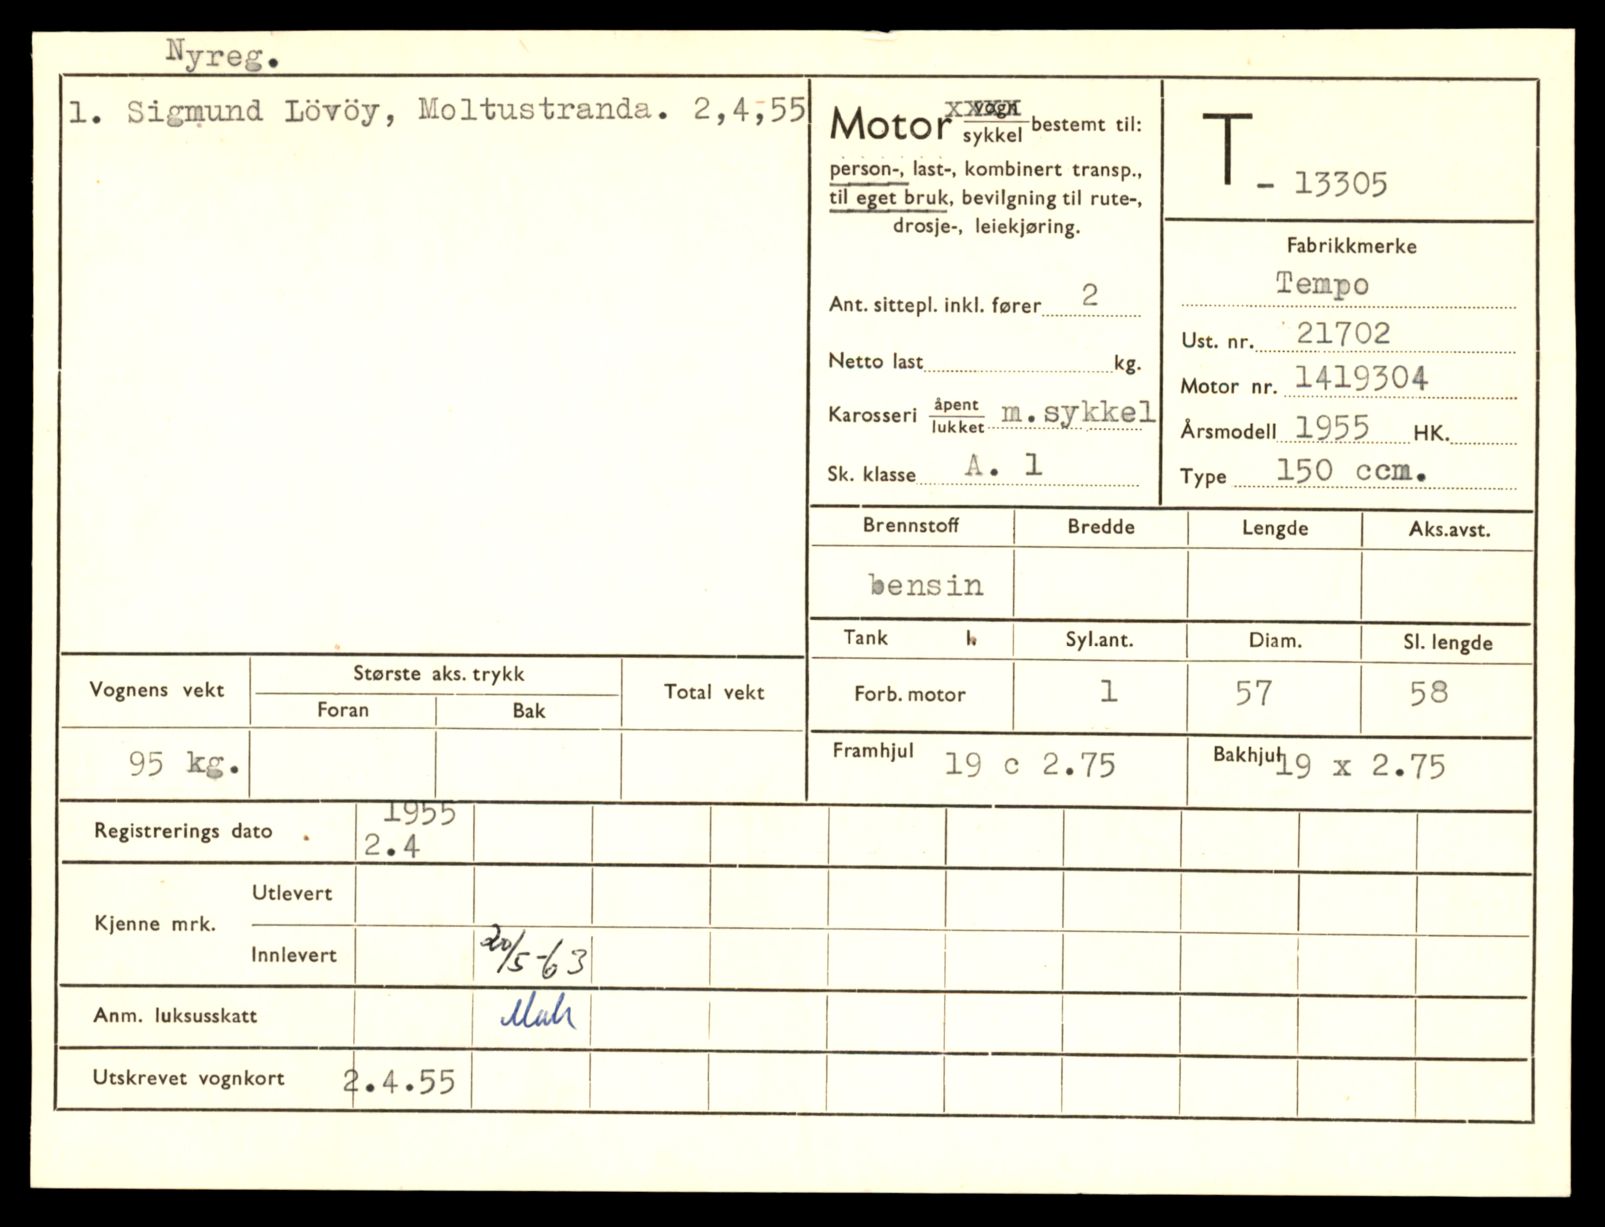 Nyreg.
1. Sigmund Lövöy, Moltustranda. 2,4,55
Motor vogn sykkel bestemt til:
person-, last-, kombinert transp.,
til eget bruk, bevilgning til rute-,
drosje-, leiekjøring.
Ant. sittepl. inkl. fører 2
Netto last kg.
Karosseri åpent lukket m.sykkel
Sk. klasse A. 1
T - 13305
Fabrikkmerke
Tempo
Ust. nr. 21702
Motor nr. 1419304
Årsmodell 1955 HK.
Type 150 ccm.
Brennstoff Bredde Lengde Aks.avst.
bensin
Tank Syl.ant. Diam. Sl. lengde
Forb. motor 1 57 58
Framhjul 19 c 2.75 Bakhjul 19 x 2.75
Vognens vekt Største aks. trykk Total vekt
Foran Bak
95 kg.
Registrerings dato 1955
2.4
Kjenne mrk. Utlevert
Innlevert 20/5-63
Anm. luksusskatt
Utskrevet vognkort 2.4.55